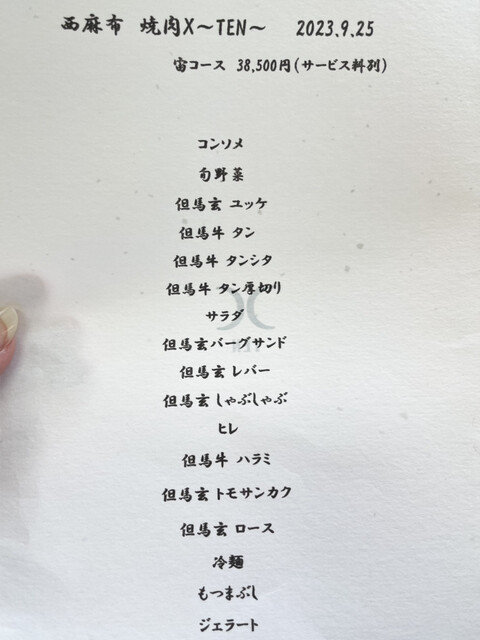 西麻布 焼肉X～TEN～ 2023.9.25
宙コース 38,500円(サービス料別)
コンソメ
旬野菜
但馬玄 ユッケ
但馬牛 タン
但馬牛 タンシタ
但馬牛 タン厚切り
サラダ
但馬玄バーグサンド
但馬玄 レバー
但馬玄 しゃぶしゃぶ
ヒレ
但馬牛 ハラミ
但馬玄 トモサンカク
但馬玄 ロース
冷麺
もつまぶし
ジェラート